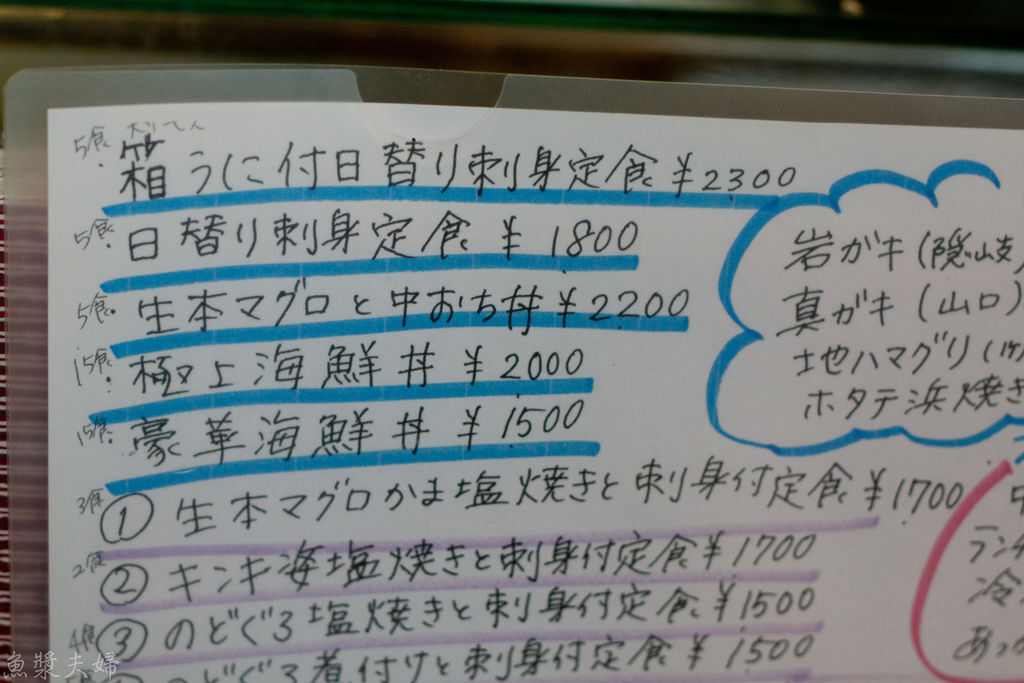 5食 箱うに付日替り刺身定食 ¥2300
5食 日替り刺身定食 ¥1800
5食 生本マグロと中おち丼 ¥2200
15食 極上海鮮丼 ¥2000
15食 豪華海鮮丼 ¥1500
3食 ① 生本マグロかま塩焼きと刺身付定食 ¥1700
2食 ② キンキ姿塩焼きと刺身付定食 ¥1700
4食 ③ のどぐろ塩焼きと刺身付定食 ¥1500
のどぐろ煮付けと刺身付定食 ¥1500
岩ガキ(隠岐)
真ガキ(山口)
地ハマグリ(
ホタテ浜焼き
ランチ
冷
あっ
魚漿夫婦